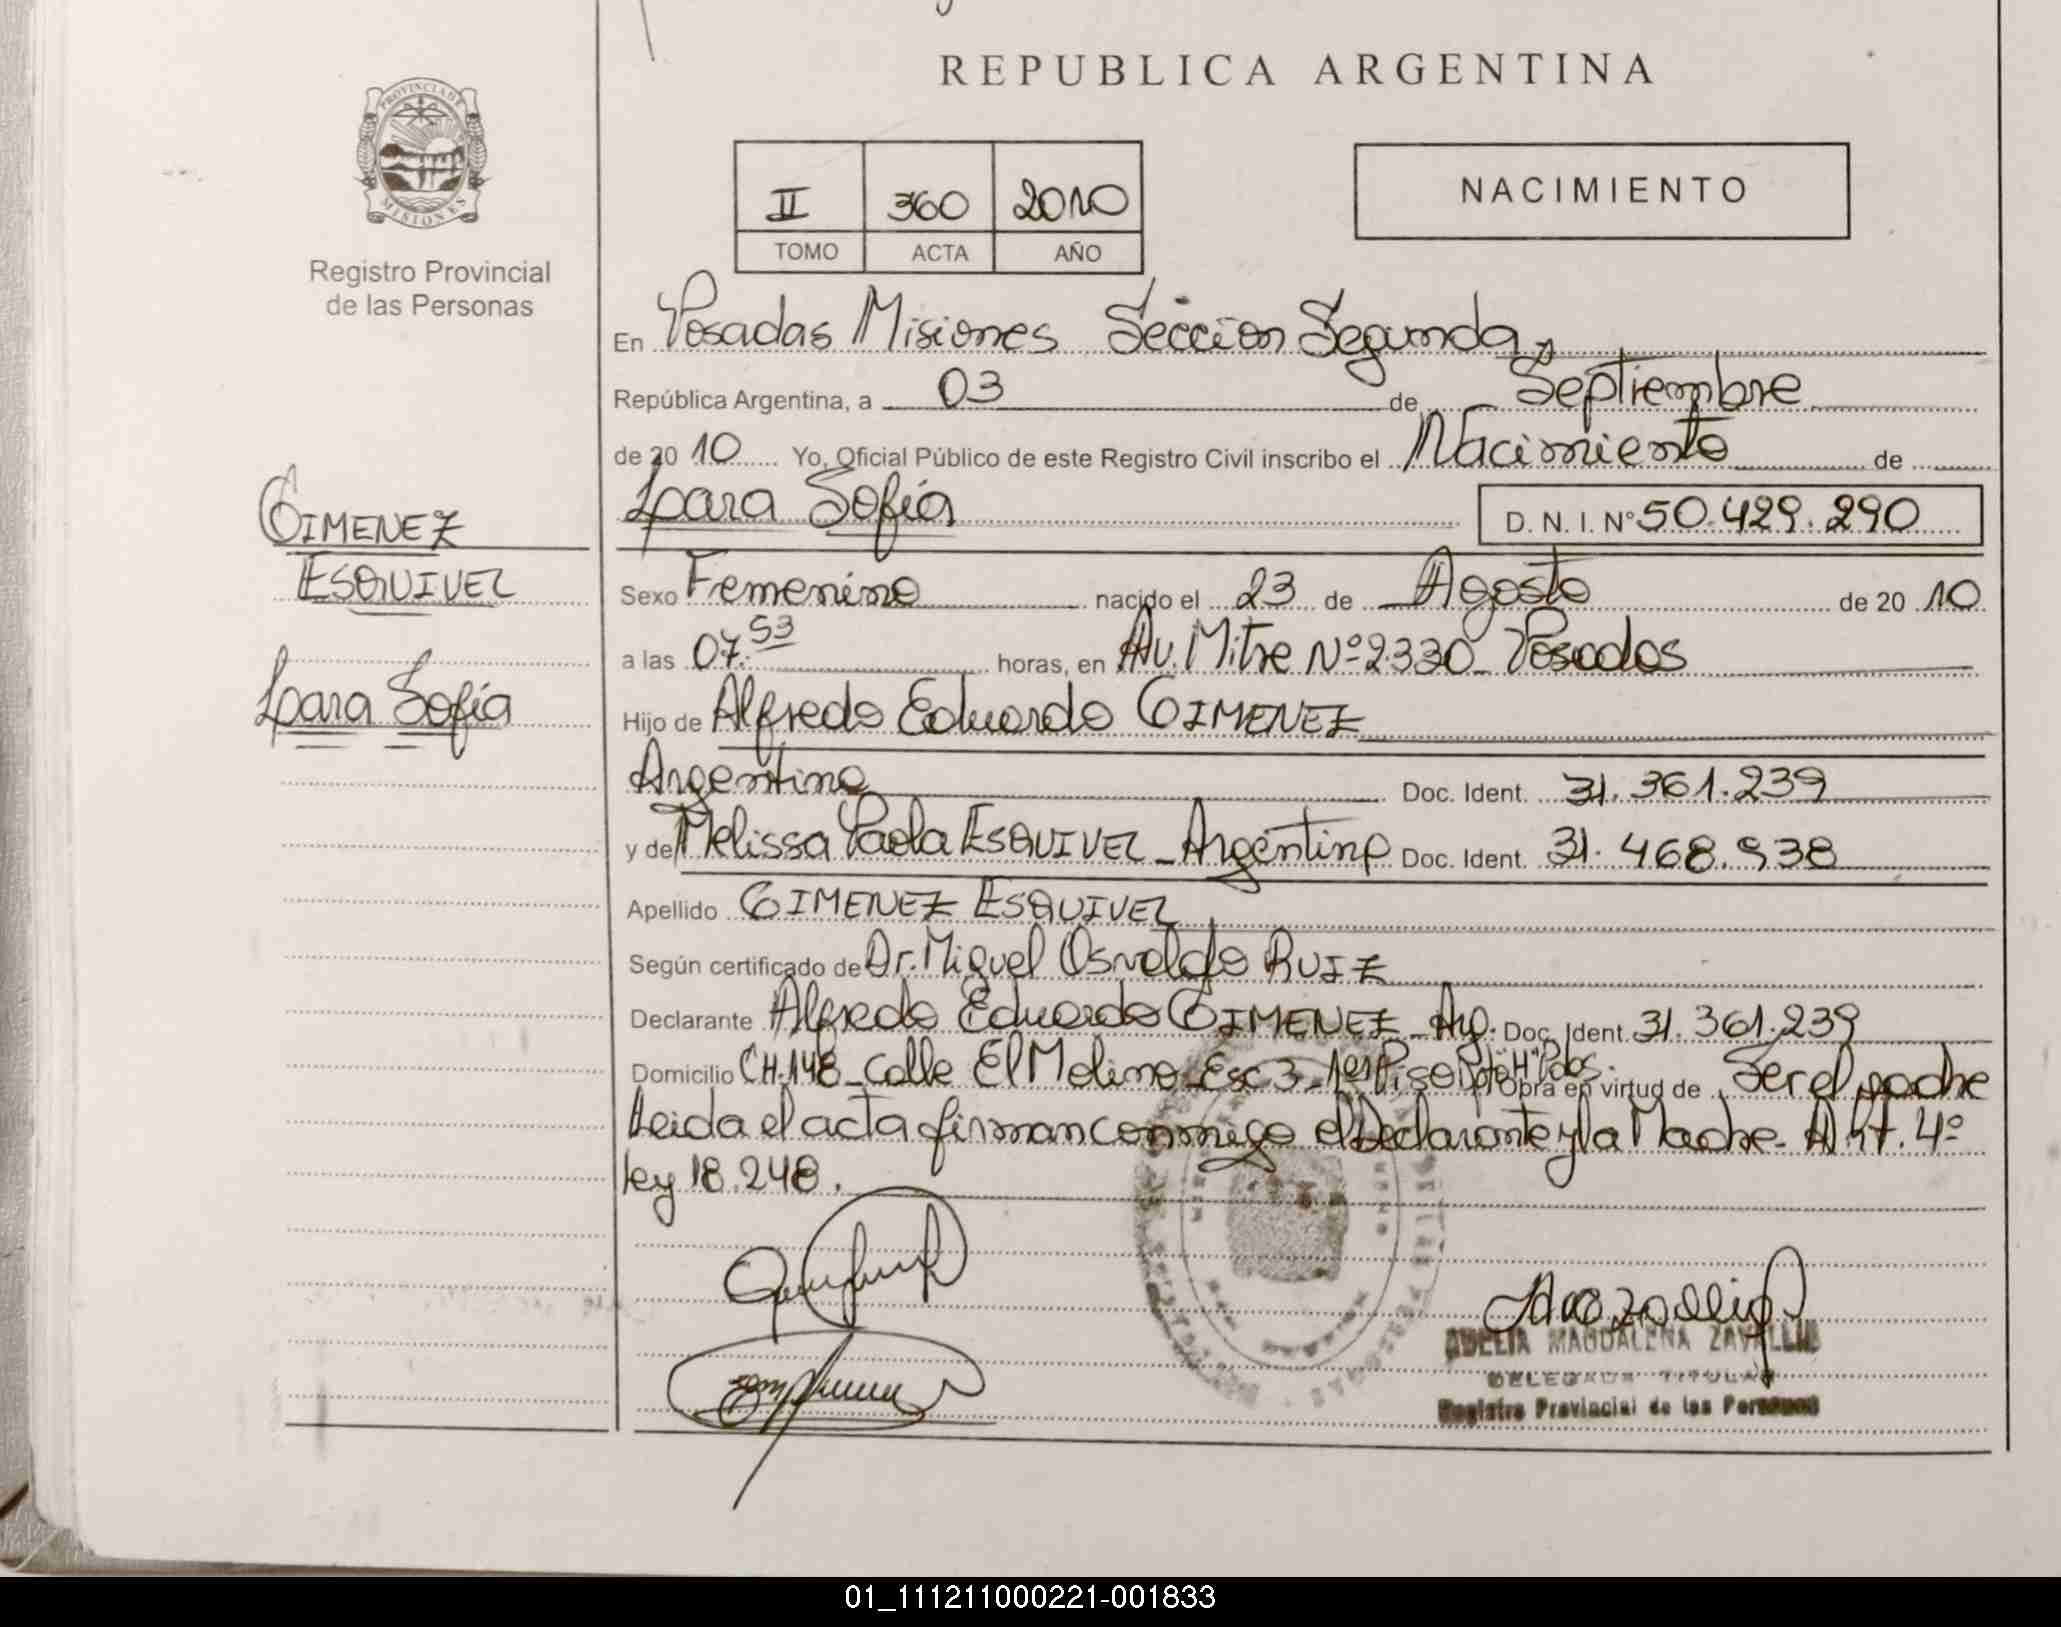 REPUBLICA ARGENTINA
PROVINCIA DE
MISIONES
Registro Provincial
de las Personas
II 360 2010
TOMO ACTA AÑO
NACIMIENTO
En Posadas Misiones Sección Segunda,
República Argentina, a 03 de Septiembre
de 2010 Yo, Oficial Público de este Registro Civil inscribo el Nacimiento de
Lara Sofía D. N. I. Nº 50.429.290
GIMENEZ
ESQUIVEL
Lara Sofía
Sexo Femenino nacido el 23 de Agosto de 2010
a las 07:53 horas, en Av. Mitre Nº 2.330_ Posadas
Hijo de Alfredo Eduardo GIMENEZ
Argentino Doc. Ident. 31.361.239
y de Melissa Paola ESQUIVEL_Argentina Doc. Ident. 31.468.938
Apellido GIMENEZ ESQUIVEL
Según certificado de Dr. Miguel Osvaldo RUIZ
Declarante Alfredo Eduardo GIMENEZ_Arg. Doc. Ident. 31.361.239
Domicilio CH.148_Calle El Molino_Esc 3_1er Piso Pto "H" Pdas. Obra en virtud de Ser el padre
Leida el acta firman conmigo el Declarante y la Madre. Art. 4º
ley 18.248.
ADELIA MAGDALENA ZAVALLIA
DELEGADA TITULAR
Registro Provincial de las Personas
01_111211000221-001833